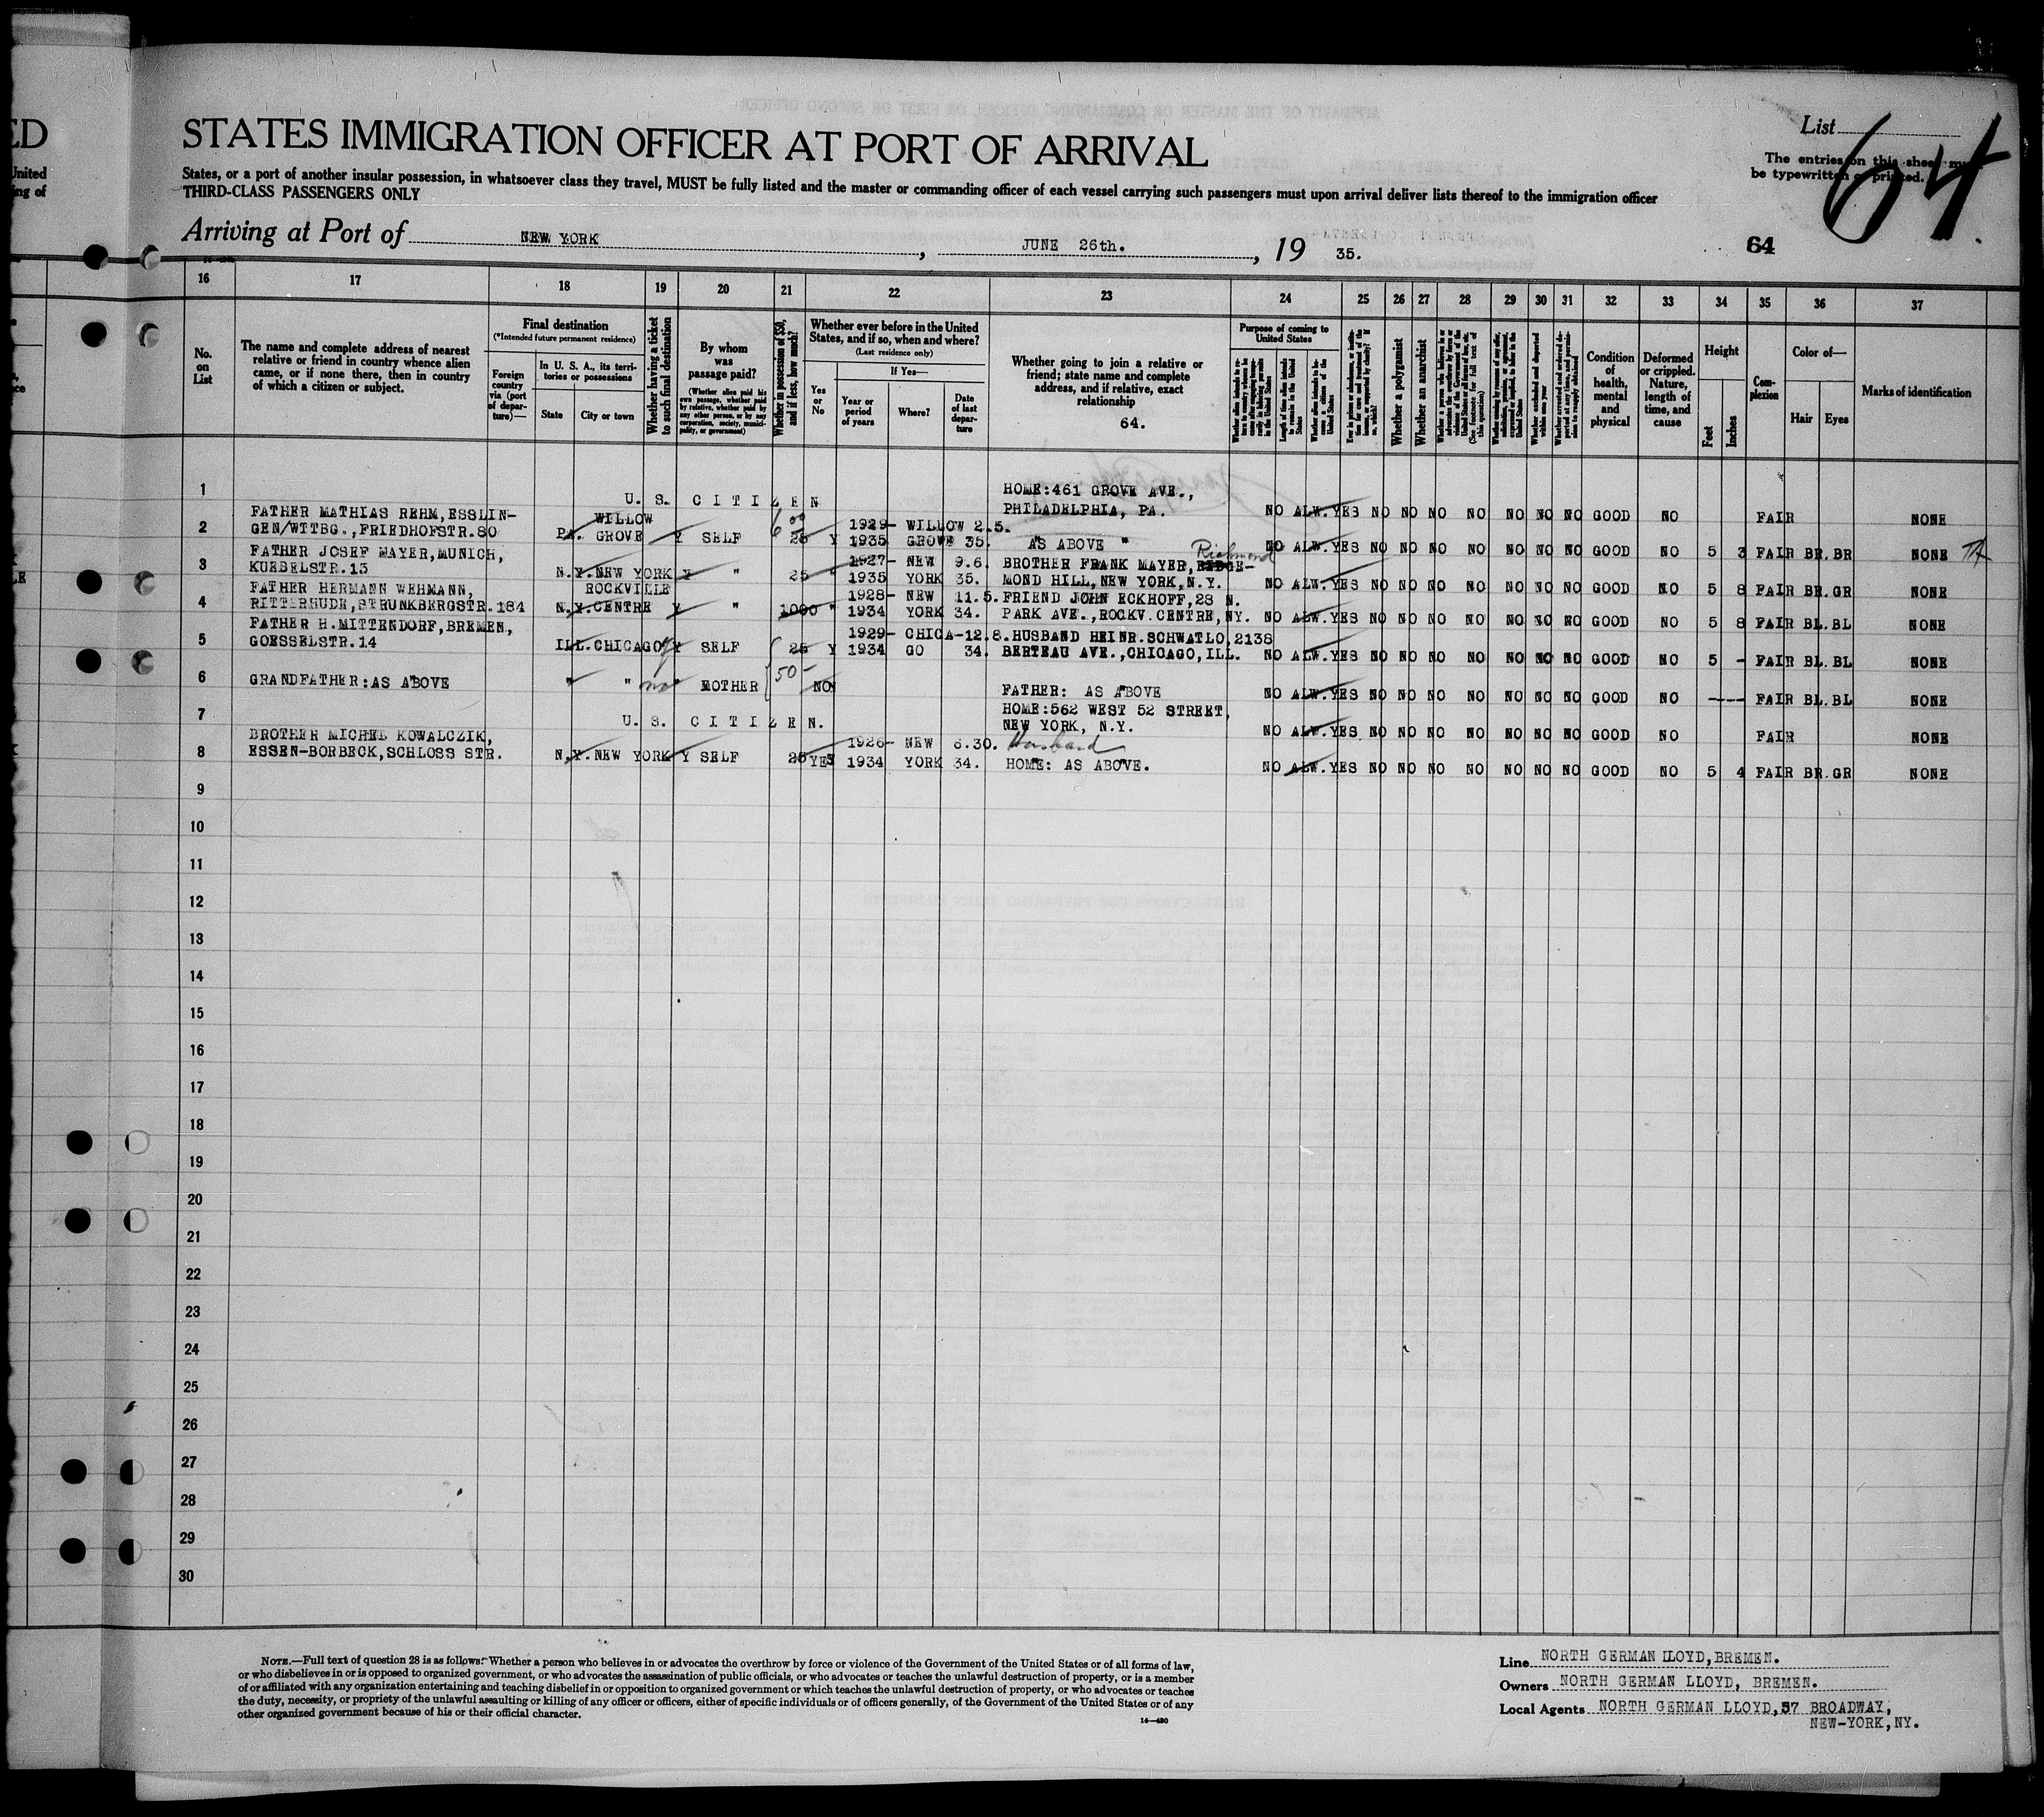 ED
United
ing of
STATES IMMIGRATION OFFICER AT PORT OF ARRIVAL
List
64
The entries on this sheet must
be typewritten or printed.
States, or a port of another insular possession, in whatsoever class they travel, MUST be fully listed and the master or commanding officer of each vessel carrying such passengers must upon arrival deliver lists thereof to the immigration officer
THIRD-CLASS PASSENGERS ONLY
Arriving at Port of NEW YORK, JUNE 26th., 19 35.
64
16 17 18 19 20 21 22 23 24 25 26 27 28 29 30 31 32 33 34 35 36 37
No. on List
The name and complete address of nearest relative or friend in country whence alien came, or if none there, then in country of which a citizen or subject.
Final destination
(*Intended future permanent residence)
Foreign country via (port of departure)—
In U. S. A., its territories or possessions
State
City or town
Whether having a ticket to such final destination
By whom was passage paid?
(Whether alien paid his own passage, whether paid by relative, whether paid by any other person, or by any corporation, society, municipality, or government)
Whether in possession of $50, and if less, how much?
Whether ever before in the United States, and if so, when and where?
(Last residence only)
Yes or No
If Yes—
Year or period of years
Where?
Date of last departure
Whether going to join a relative or friend; state name and complete address, and if relative, exact relationship
64.
Purpose of coming to United States
Length of time alien intends to remain in the United States
Whether alien intends to become a citizen of the United States
Whether a polygamist
Whether an anarchist
(See footnote for full text of this question)
Whether excluded and deported within one year
Condition of health, mental and physical
Deformed or crippled. Nature, length of time, and cause
Height
Feet
Inches
Complexion
Color of—
Hair
Eyes
Marks of identification
1 U. S. CITIZEN HOME:461 GROVE AVE.,
PHILADELPHIA, PA. NO ALW. YES NO NO NO NO NO NO NO GOOD NO FAIR NONE
FATHER MATHIAS REHM,ESSLIN- WILLOW 600 1929- WILLOW 2.5.
2 GEN/WTTBG.,FRIEDHOFSTR.80 PA. GROVE Y SELF 25 Y 1935 GROVE 35. "AS ABOVE " NO ALW. YES NO NO NO NO NO NO NO GOOD NO 5 3 FAIR BR. BR NONE
FATHER JOSEF MAYER,MUNICH, 1927- NEW 9.6. BROTHER FRANK MAYER, Richmond
3 KUEBELSTR.13 N.Y. NEW YORK Y " 25 " 1935 YORK 35. MOND HILL,NEW YORK,N.Y. NO ALW. YES NO NO NO NO NO NO NO GOOD NO 5 8 FAIR BR. GR NONE
FATHER HERMANN WEHMANN, ROCKVILLE 1928- NEW 11.5. FRIEND JOHN ECKHOFF,28 N.
4 RITTERHUDE,STRUNKBERGSTR.184 N.Y. CENTRE Y " 1000 " 1934 YORK 34. PARK AVE.,ROCKV.CENTRE,NY. NO ALW. YES NO NO NO NO NO NO NO GOOD NO 5 8 FAIR BL. BL NONE
FATHER H.MITTENDORF,BREMEN, 1929- CHICA- 12.8. HUSBAND HEINR.SCHWATLO,2138
5 GOESSELSTR.14 ILL. CHICAGO Y SELF 25 Y 1934 GO 34. BERTEAU AVE.,CHICAGO,ILL. NO ALW. YES NO NO NO NO NO NO NO GOOD NO 5 - FAIR BL. BL NONE
6 GRANDFATHER:AS ABOVE " " no MOTHER 50- NO FATHER: AS ABOVE NO ALW. YES NO NO NO NO NO NO NO GOOD NO ---- FAIR BL. BL NONE
7 U. S. CITIZEN. HOME:562 WEST 52 STREET,
NEW YORK, N.Y. NO ALW. YES NO NO NO NO NO NO NO GOOD NO FAIR NONE
BROTHER MICHEL KOWALCZIK, 1926- NEW 6.30. Husband
8 ESSEN-BORBECK,SCHLOSS STR. N.Y. NEW YORK Y SELF 25 YES 1934 YORK 34. HOME: AS ABOVE. NO ALW. YES NO NO NO NO NO NO NO GOOD NO 5 4 FAIR BR. GR NONE
9
10
11
12
13
14
15
16
17
18
19
20
21
22
23
24
25
26
27
28
29
30
NOTE.—Full text of question 28 is as follows: Whether a person who believes in or advocates the overthrow by force or violence of the Government of the United States or of all forms of law,
or who disbelieves in or is opposed to organized government, or who advocates the assassination of public officials, or who advocates or teaches the unlawful destruction of property, or is a member
of or affiliated with any organization entertaining and teaching disbelief in or opposition to organized government or which teaches the unlawful destruction of property, or who advocates or teaches
the duty, necessity, or propriety of the unlawful assaulting or killing of any officer or officers, either of specific individuals or of officers generally, of the Government of the United States or of any
other organized government because of his or their official character.
14—430
Line NORTH GERMAN LLOYD,BREMEN.
Owners NORTH GERMAN LLOYD, BREMEN.
Local Agents NORTH GERMAN LLOYD,57 BROADWAY,
NEW-YORK,NY.